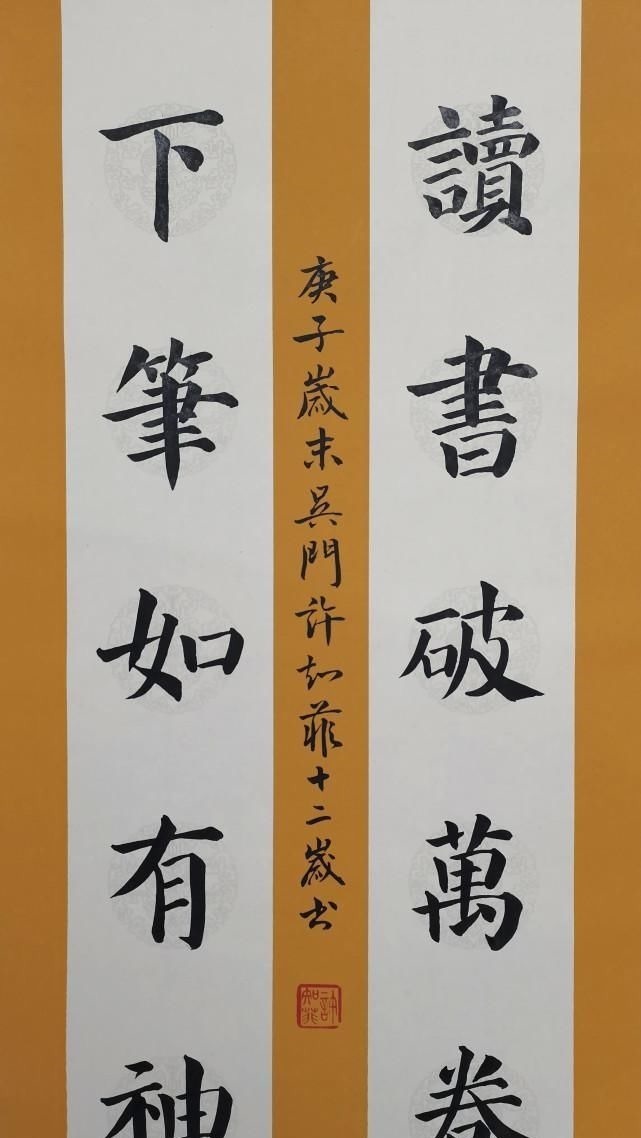 讀書破萬卷
下筆如有神
庚子歲末吴門許知菲十二歲书
許知菲